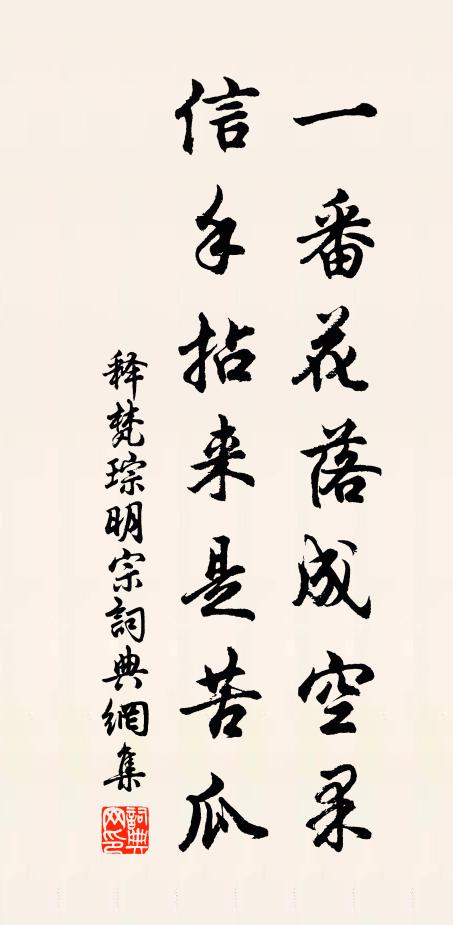 一番花落成空果
信手拈来是苦瓜
释梵琮明宗詞典網集
詞典網印